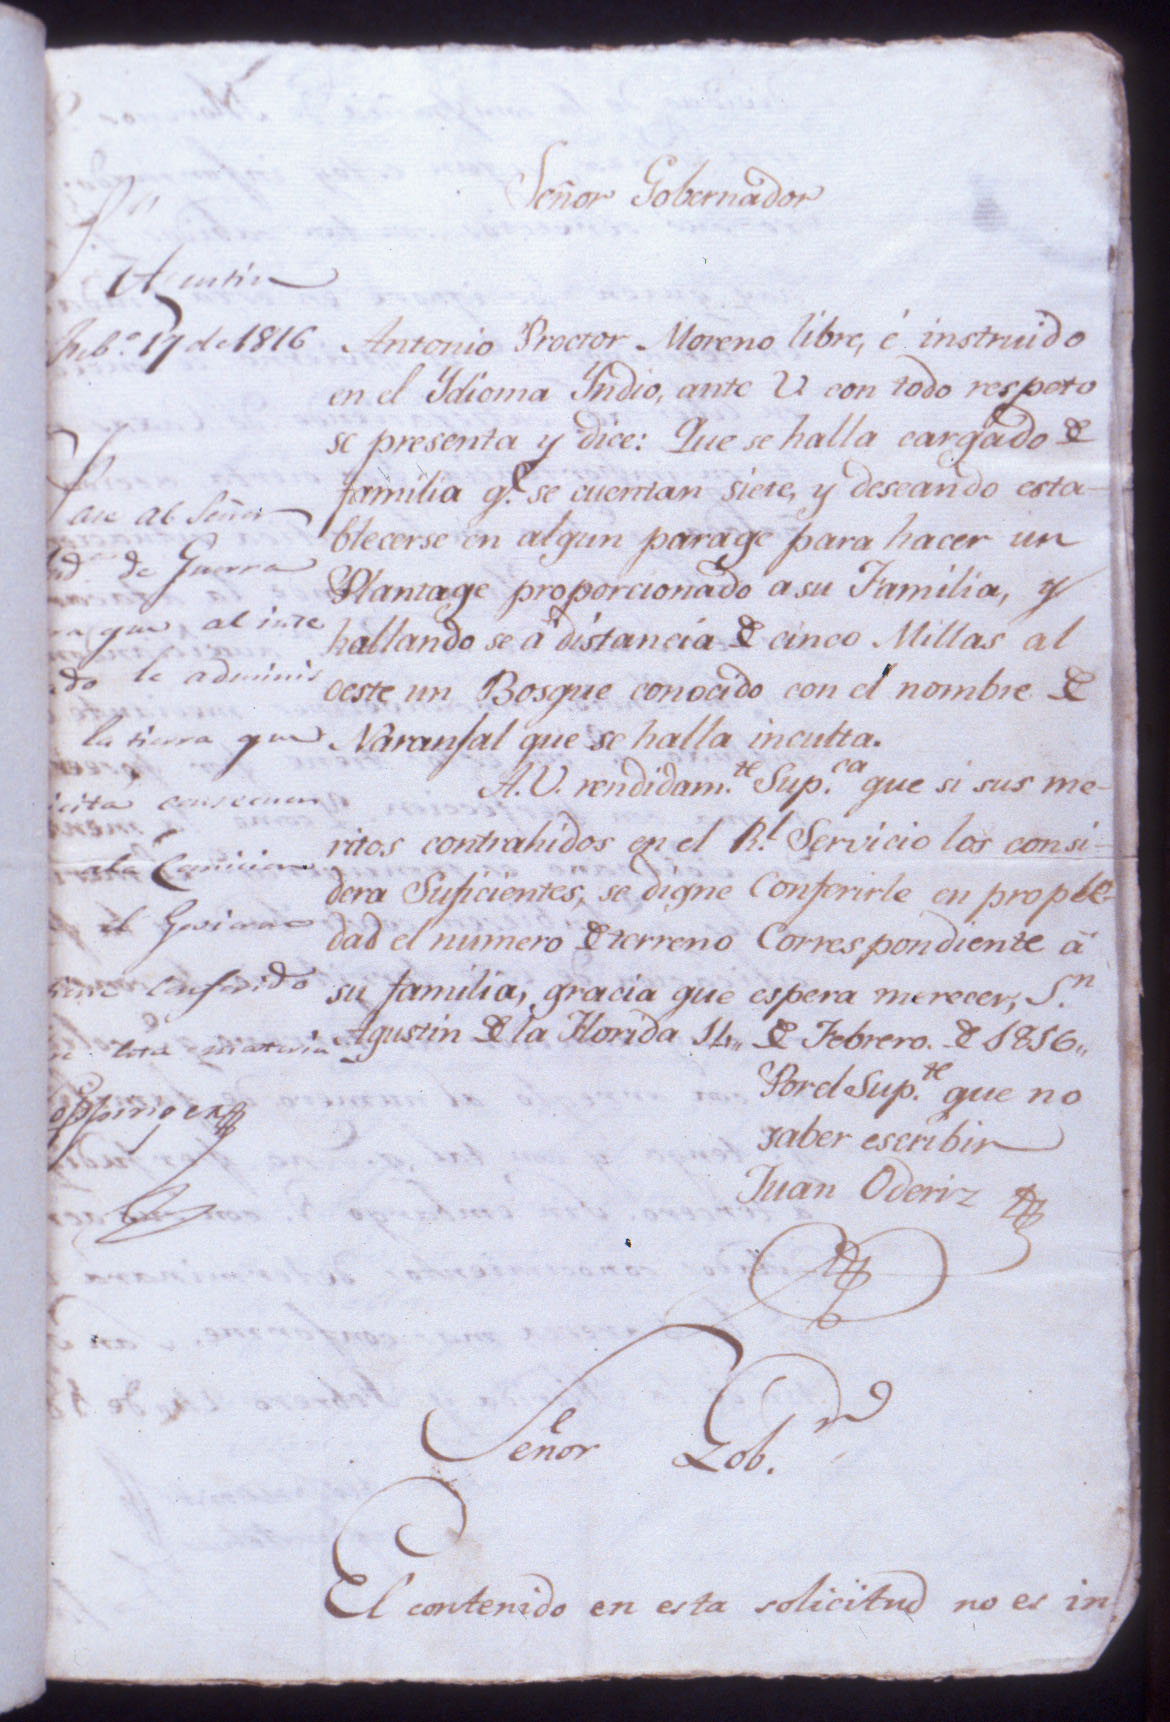 Señor Gobernador
Sn
Agustin
Feb.º 17 de 1816
Pase al Señor
de Guerra
que al inte
le adminis
la tierra que
cita consecuen
el Govierno
conferido
materia
Coppinger
Antonio Proctor Moreno libre, é instruido
en el Ydioma Yndio, ante V. con todo respeto
se presenta y dice: Que se halla cargado de
familia q.e se cuentan siete, y deseando esta-
blecerse en algun parage para hacer un
Plantage proporcionado a su Familia, y
hallando se á distancia de cinco Millas al
oeste un Bosque conocido con el nombre de
Naranjal que se halla inculta.
A.V. rendidam.te Sup.ca que si sus me-
ritos contrahidos en el R.l Servicio los consi-
dera Suficientes, se digne Conferirle en propie-
dad el numero de terreno Correspondiente á
su familia, gracia que espera merecer, S.n
Agustin de la Florida 14,, de Febrero. de 1816,,
Por el Sup.te que no
saber escribir
Juan Oderiz
Señor Gob.or
El contenido en esta solicitud no es in